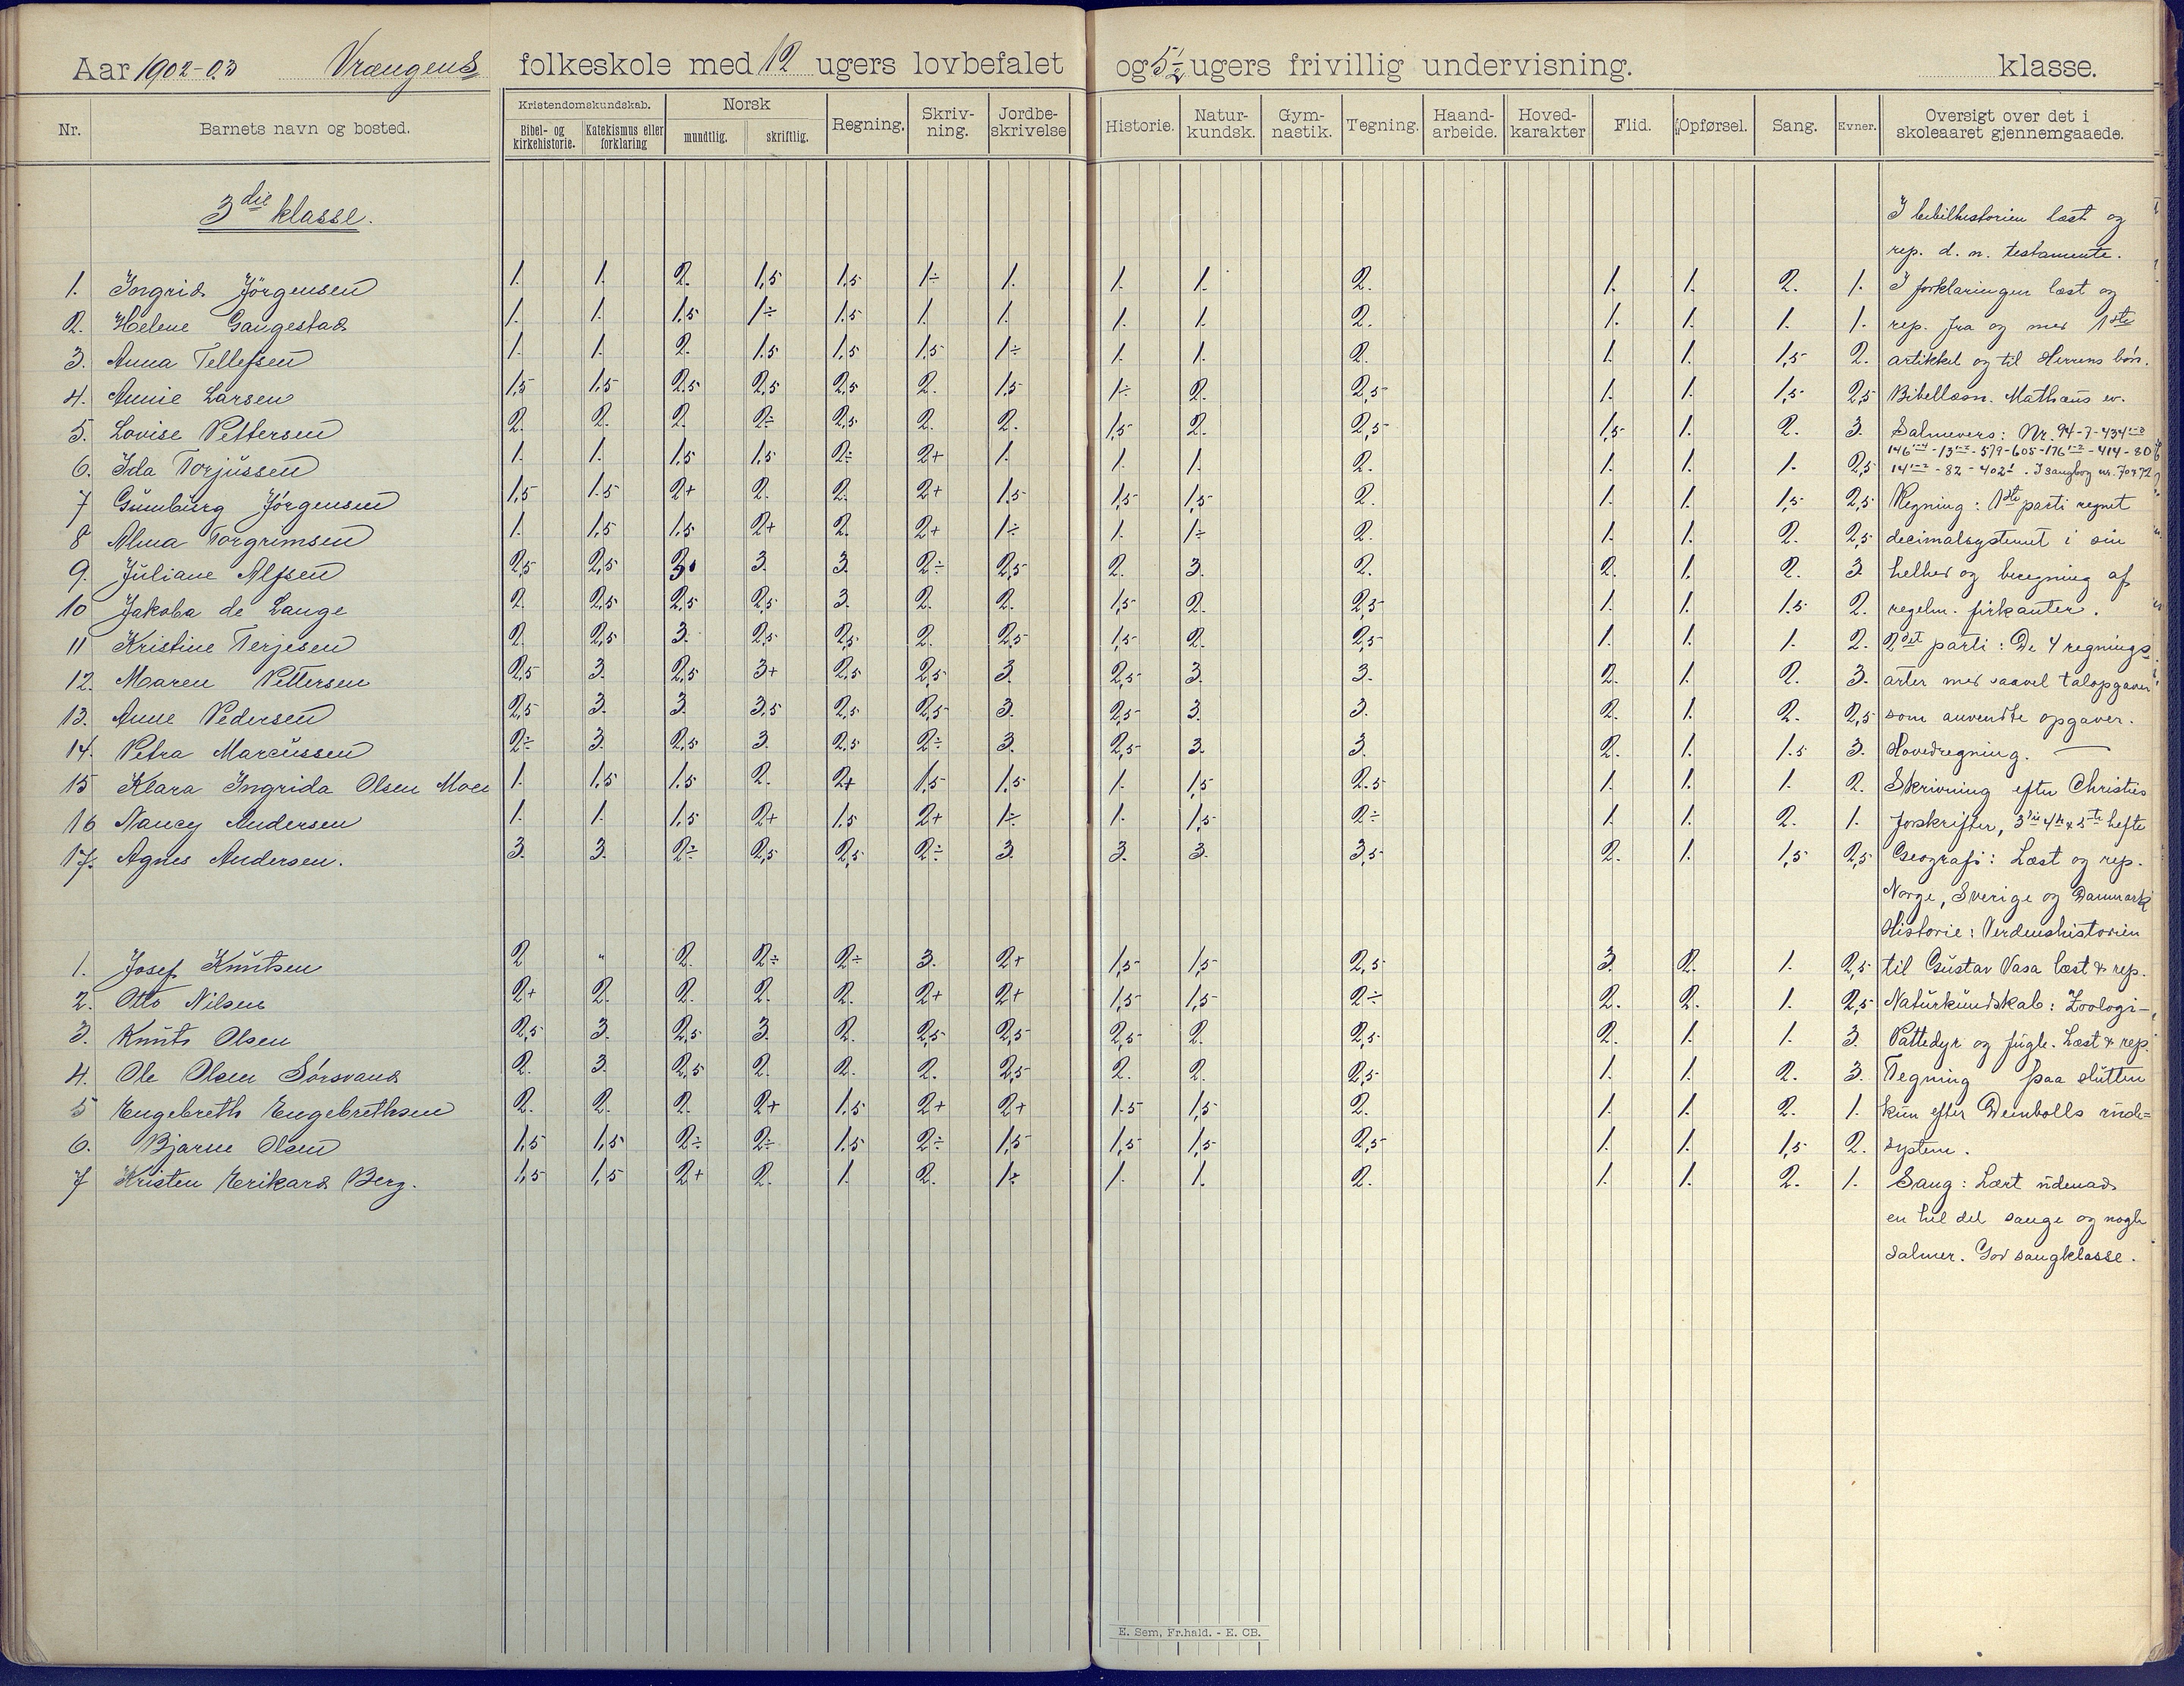 Aar 1902-03 Vrængens folkeskole med 12 ugers lovbefalet og 5 1/2 ugers frivillig undervisning. klasse.
Nr. Barnets navn og bosted. Kristendomskundskab. Bibel- og kirkehistorie. Katekismus eller forklaring Norsk mundtlig. skriftlig. Regning. Skriv-ning. Jordbe-skrivelse Historie. Natur-kundsk. Gym-nastik. Tegning. Haand-arbeide. Hoved-karakter Flid. Opførsel. Sang. Evner. Oversigt over det i skoleaaret gjennemgaaede.
3die klasse.
I bibelhistorien læst og
rep. d. n. testamente.
1. Ingrid Jörgensen 1. 1. 2. 1,5 1,5 1÷ 1. 1. 1. 2. 1. 1. 2. 1. I forklaringen læst og
2. Helene Gangestad 1. 1. 1.5 1÷ 1.5 1. 1. 1. 1. 2. 1. 1. 1. 1. rep. fra og med 1ste
3. Anna Tellefsen 1. 1. 2. 1.5 1,5 1,5 1÷ 1. 1. 2. 1. 1. 1,5 2. artikkel og til Herrens bön.
4. Annie Larsen 1,5 1.5 2,5 2,5 2,5 2. 1,5 1÷ 2. 2,5 1. 1. 1,5 2,5 Bibellæsn. Mathæus ev.
5. Lovise Pettersen 2. 2. 2. 2÷ 2,5 2. 2. 1,5 2. 2,5 1,5 1. 2. 3. Salmevers: Nr. 94-7-434 1-3
146 1-4 - 13 1-2 - 579-605-176 1-2 - 414-80
6. Ida Torjussen 1. 1. 1,5 1,5 2÷ 2+ 1. 1. 1. 2. 1. 1. 1. 2,5 14 1-2 - 82 - 402 1. I sangbog nr. 70 & 72
7 Gumburg Jörgensen 1,5 1.5 2+ 2. 2. 2+ 1,5 1,5 1,5 2. 1. 1. 1,5 2,5 Regning: 1ste parti regnet
8 Alma Torgrimsen 1. 1,5 1,5 2+ 2. 2+ 1÷ 1. 1÷ 2. 1. 1. 2. 2,5 decimalsystemet i sin
9. Juliane Alfsen 2,5 2,5 3. 3. 3. 2÷ 2,5 2. 3. 2. 2. 1. 2. 3. helhed og beregning af
10 Jakoba de Lange 2. 2,5 2,5 2,5 3. 2. 2. 1,5 2. 2,5 1. 1. 1.5 2. regelm. firkanter.
11 Kristine Terjesen 2. 2,5 3. 2,5 2,5 2. 2,5 1,5 2. 2,5 1. 1. 1. 2. 2det parti: De 4 regnings
12. Maren Pettersen 2,5 3. 2,5 3+ 2,5 2,5 3. 2,5 3. 3. 2. 1. 2. 3. arter med saavel talopgaver
13. Anne Pedersen 2,5 3. 3. 3,5 2,5 2,5 3. 2,5 3. 3. 2. 1. 2. 2,5 som anvendte opgaver.
14. Petra Marcussen 2÷ 3. 2,5 3. 2,5 2÷ 3. 2,5 3. 3. 2. 1. 1.5 3. Hovedregning. —
15 Klara Ingrida Olsen Moen 1. 1,5 1.5 2. 2+ 1,5 1,5 1. 1,5 2.5 1. 1. 1. 2. Skrivning efter Christies
16 Nancy Andersen 1. 1. 1,5 2+ 1.5 2+ 1÷ 1. 1,5 2÷ 1. 1. 2. 1. forskrifter, 3die 4de & 5te hefte
17. Agnes Andersen. 3. 3. 2÷ 2,5 2,5 2÷ 3. 3. 3. 3,5 2. 1. 1,5 2,5 Geografi: Læst og rep.
Norge, Sverige og Danmark
Historie: Verdenshistorien
1. Josef Knutsen 2 " 2. 2÷ 2÷ 3. 2+ 1,5 1,5 2,5 3. 2. 1. 2,5 til Gustav Vasa læst & rep.
2. Otto Nilsen 2+ 2. 2. 2. 2. 2+ 2+ 1,5 1,5 2÷ 2. 2. 1. 2,5 Naturkundskab: Zoologi-
3. Knut Olsen 2,5 3. 2,5 3. 2. 2,5 2,5 2,5 2. 2,5 2. 1. 1. 3. Pattedyr og fugle. Læst & rep.
4. Ole Olsen Sörsvand 2. 3. 2,5 2. 2. 2. 2,5 2. 2. 2,5 1. 1. 2. 3. Tegning paa slutten
5 Engebreth Engebrethsen 2. 2. 2. 2+ 1.5 2+ 2+ 1.5 1,5 2. 1. 1. 2. 1. kun efter Deinbolls rude=
6. Bjarne Olsen 1,5 1,5 2÷ 2÷ 1.5 2÷ 1,5 1,5 1,5 2,5 1. 1. 1,5 2. system.
7 Kristen Erikard Berg. 1,5 1,5 2+ 2. 1. 2. 1÷ 1. 1. 2. 1. 1. 2. 1. Sang: Lært udenad
en hel del sange og nogle
salmer. God sangklasse.
E. Sem, Fr.hald. - E. CB.